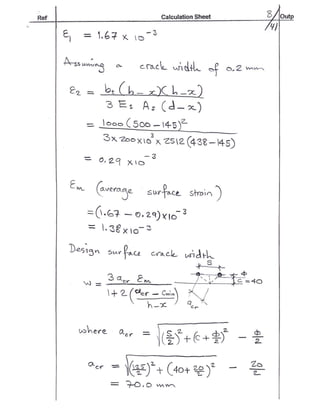 Ref Calculation Sheet 8/41 Outp
ε₁ = 1.67 × 10⁻³
Assuming a crack width of 0.2 mm
ε₂ = bₜ (h - x)(h - x) / 3 Eₛ Aₛ (d - x)
= 1000 (500 - 145)² / 3×200×10³ × 2512 (438 - 145)
= 0.29 × 10⁻³
εₘ (average surface strain)
= (1.67 - 0.29) × 10⁻³
= 1.38 × 10⁻³
Design surface crack width
S
w = 3 a_cr εₘ / 1 + 2 (a_cr - C_min / h - x)
Φ
C = 40
a_cr
where a_cr = √((S/2)² + (c + Φ/2)²) - Φ/2
a_cr = √((125/2)² + (40 + 20/2)²) - 20/2
= 70.0 mm